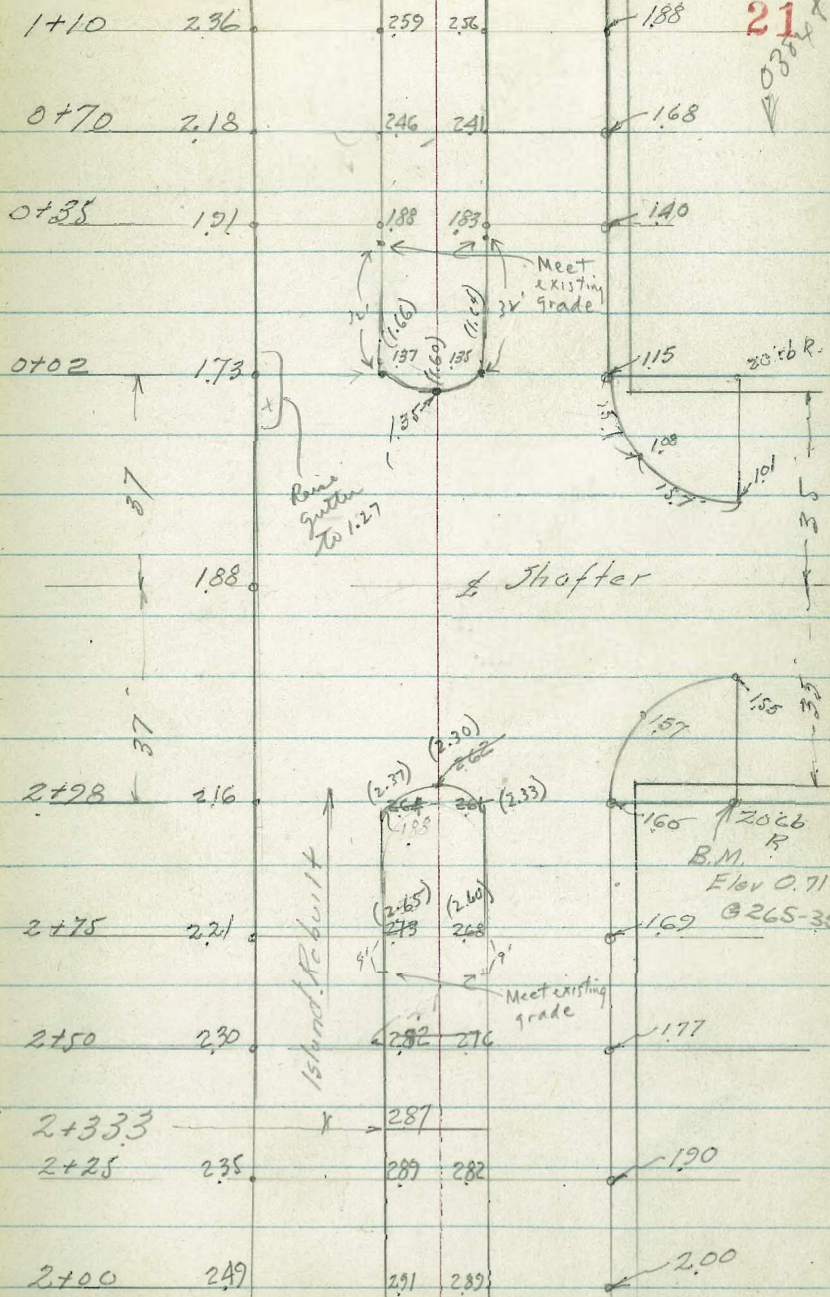 21
1+10 2.36 259 256 1.88
.0384
0+70 2.18 246 241 1.68
0+35 1.91 188 183 1.40
Meet
existing
grade
32'
(1.66) (1.60) (1.64)
0+02 1.73 137 135 1.15 20' cb R.
1.35
15.7
1.08
15.7
1.01
Raise
gutter
to 1.27
37 35
1.88 ℄ Shafter
37' 35
1.55
1.57
(2.30)
262
(2.37) (2.33)
2+98 2.16 264 261 1.60 20' cb
R
188
B.M.
Elev 0.71
@ 265-35
Island Rebuilt
(2.65) (2.60)
2+75 2.21 273 268 1.69
9' 9'
Meet existing
grade
2+50 2.30 282 276 1.77
2+333 287
2+25 2.35 289 282 1.90
2+00 2.49 291 289 2.00